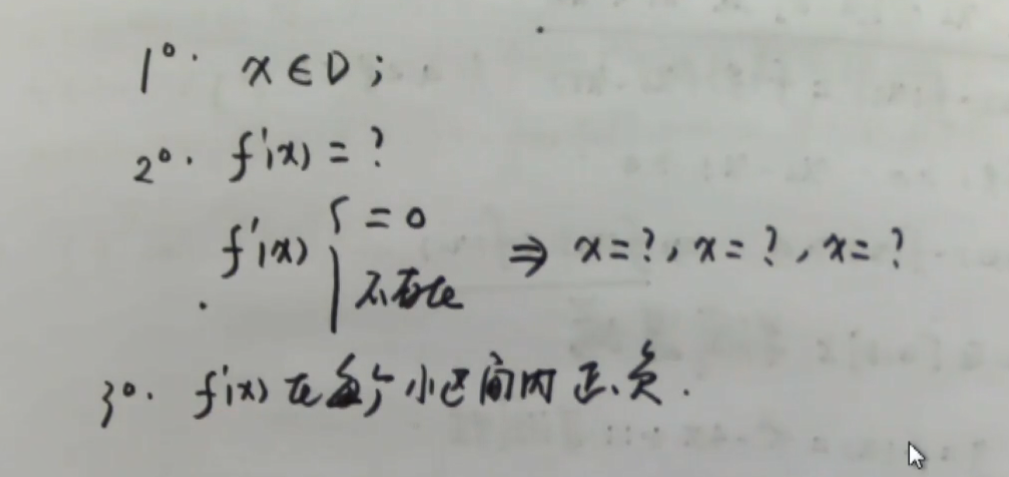 1°. x∈D;
2°. f'(x)=?
f'(x) { =0
不存在 ⇒ x=?, x=?, x=?
3°. f'(x)在每个小区间内正、负.